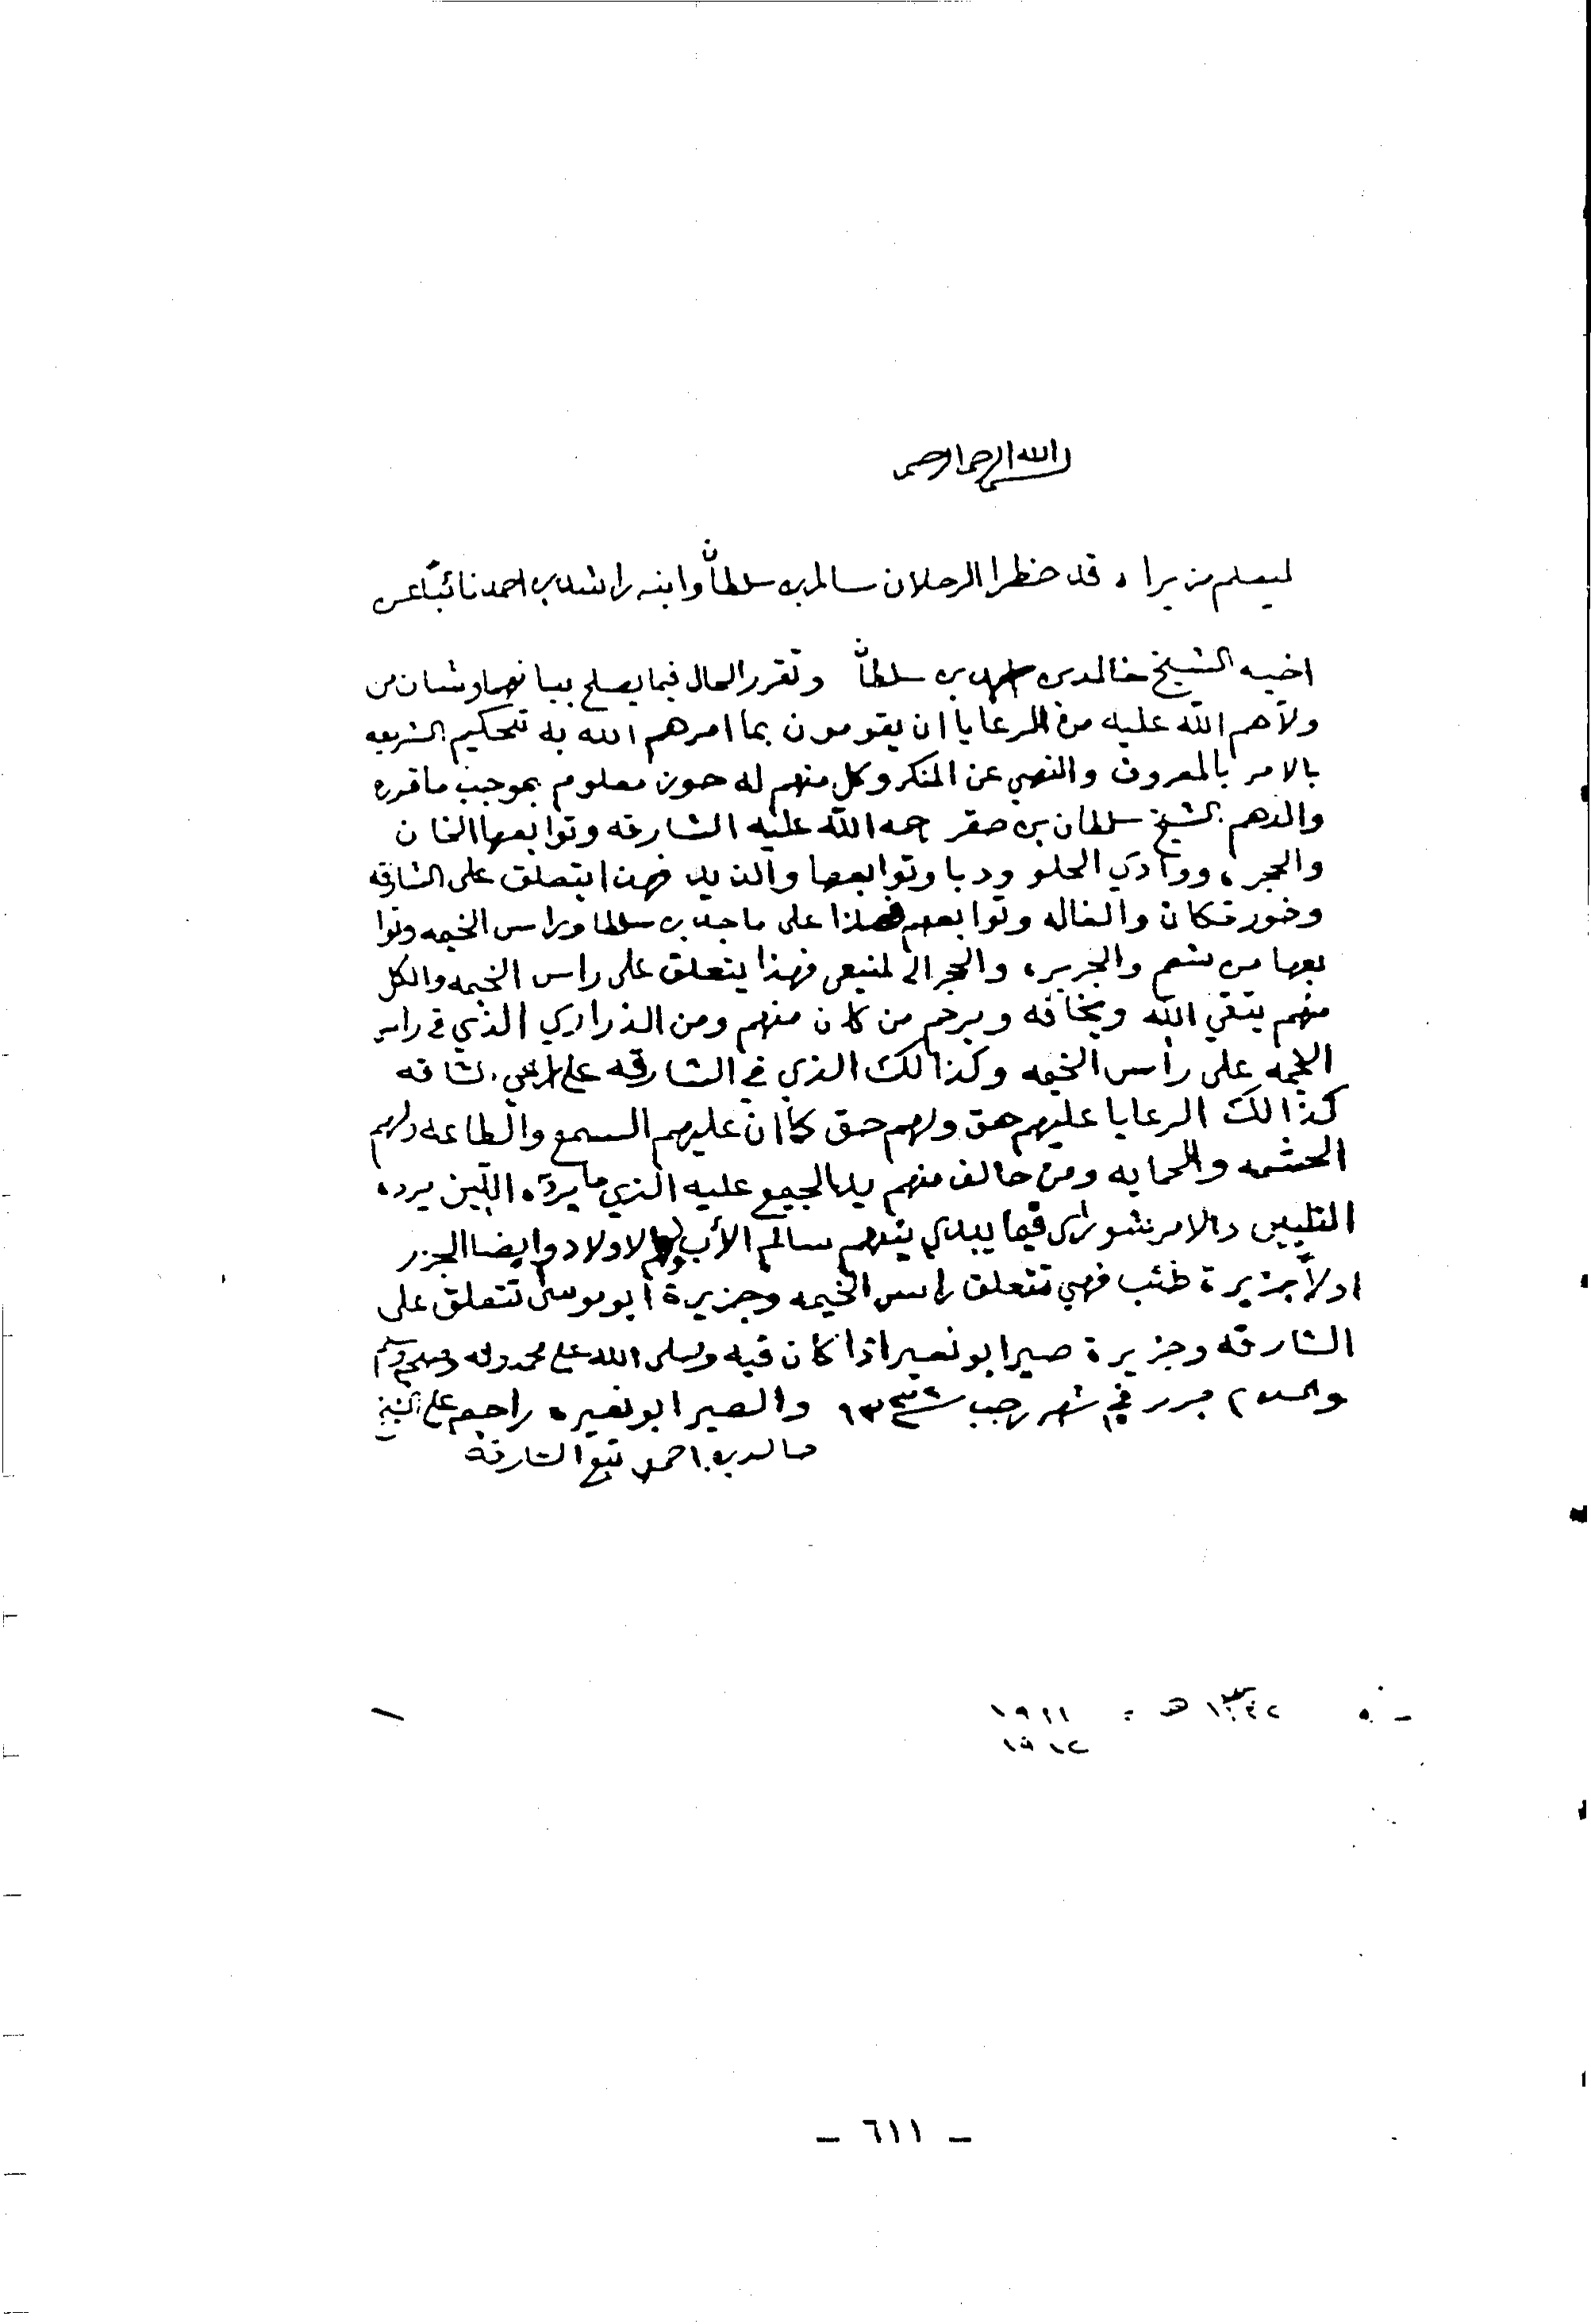 الله الرحمن الرحيم
ليعلم من يراه قد حظرا الرجلان سالم بن سلطان وابنه راشد بن احمد نائباً عن
اخيه الشيخ خالد بن احمد بن سلطان وتقرر الحال فيما يصلح بينهما وشان من
ولاهم الله عليه من الرعايا ان يقومون بما امرهم الله به تتحكيم الشريعه
بالامر بالمعروف والنهي عن المنكر وكل منهم له حون معلوم بموجب ما قرره
والدهم الشيخ سلطان بن صقر رحمه الله عليه الشارقه وتوابعها الخان
والحجره ووادي الحلو ودبا وتوابعها والذيد فهذا يتعلق على الشارقه
وخورفكان والغاله وتوابعهم فهذا على ماجد بن سلطان وراس الخيمه وتوا
بعها من شعم والجزيره والحجر الى المنيعي فهذا يتعلق على راس الخيمه والكل
منهم يتقي الله ويخافه ويرحم من كان منهم ومن الذراري الذي في راس
الخيمه على رأس الخيمه وكذالك الذي في الشارقه على اهلي الشاقه
كذالك الرعايا عليهم حق ولهم حق كما ان عليهم السمع والطاعه ولهم
الحشمه والحمايه ومن خالف منهم يد الجميع عليه الذي ما يرده اللين يرده
التلييس والامر شورى فيما يبدي بينهم سالم الأب ولهم الاولاد وايضا الجزر
اولاً جزيرة طنب فهي تتعلق راس الخيمه وجزيرة ابوموسى تتعلق على
الشارقه وجزيرة صير ابو نعير اذا كان فيه وصلى الله على محمد واله وصحبه وسلم
والسلام حرر في شهر رجب سنة ١٣ والصير ابو نعيره راجع على الشيخ
خالد بن احمد تبع الشارقة
هـ = ١٩١١
١٩١٢
- ٦١١ -